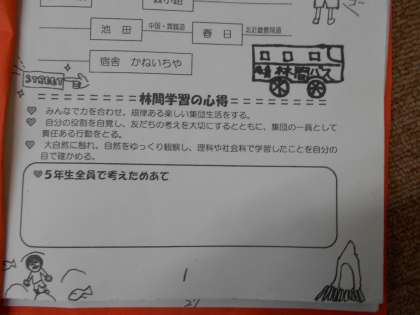 池 田
中国・舞鶴道
春 日
北近畿豊岡道
宿舎 かねいちや
STREET
林間バス
林間学習の心得
みんなで力を合わせ、規律ある楽しい集団生活をする。
自分の役割を自覚し、友だちの考えを大切にするとともに、集団の一員として
責任ある行動をとる。
大自然に触れ、自然をゆっくり観察し、理科や社会科で学習したことを自分の
目で確かめる。
5年生全員で考えためあて
1
21